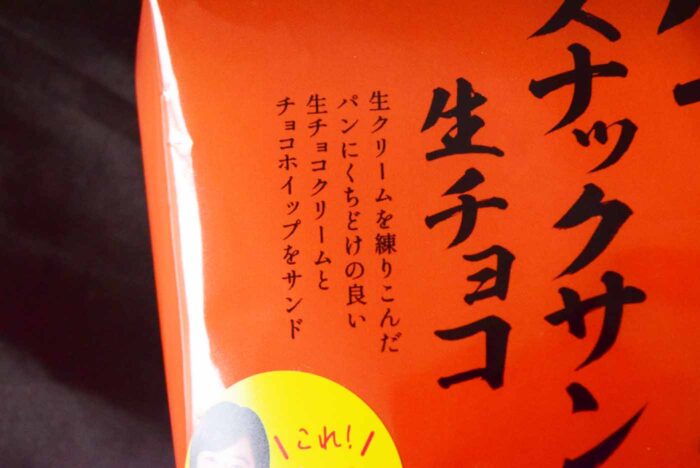 スナックサン
生チョコ
生クリームを練りこんだ
パンにくちどけの良い
生チョコクリームと
チョコホイップをサンド
これ!